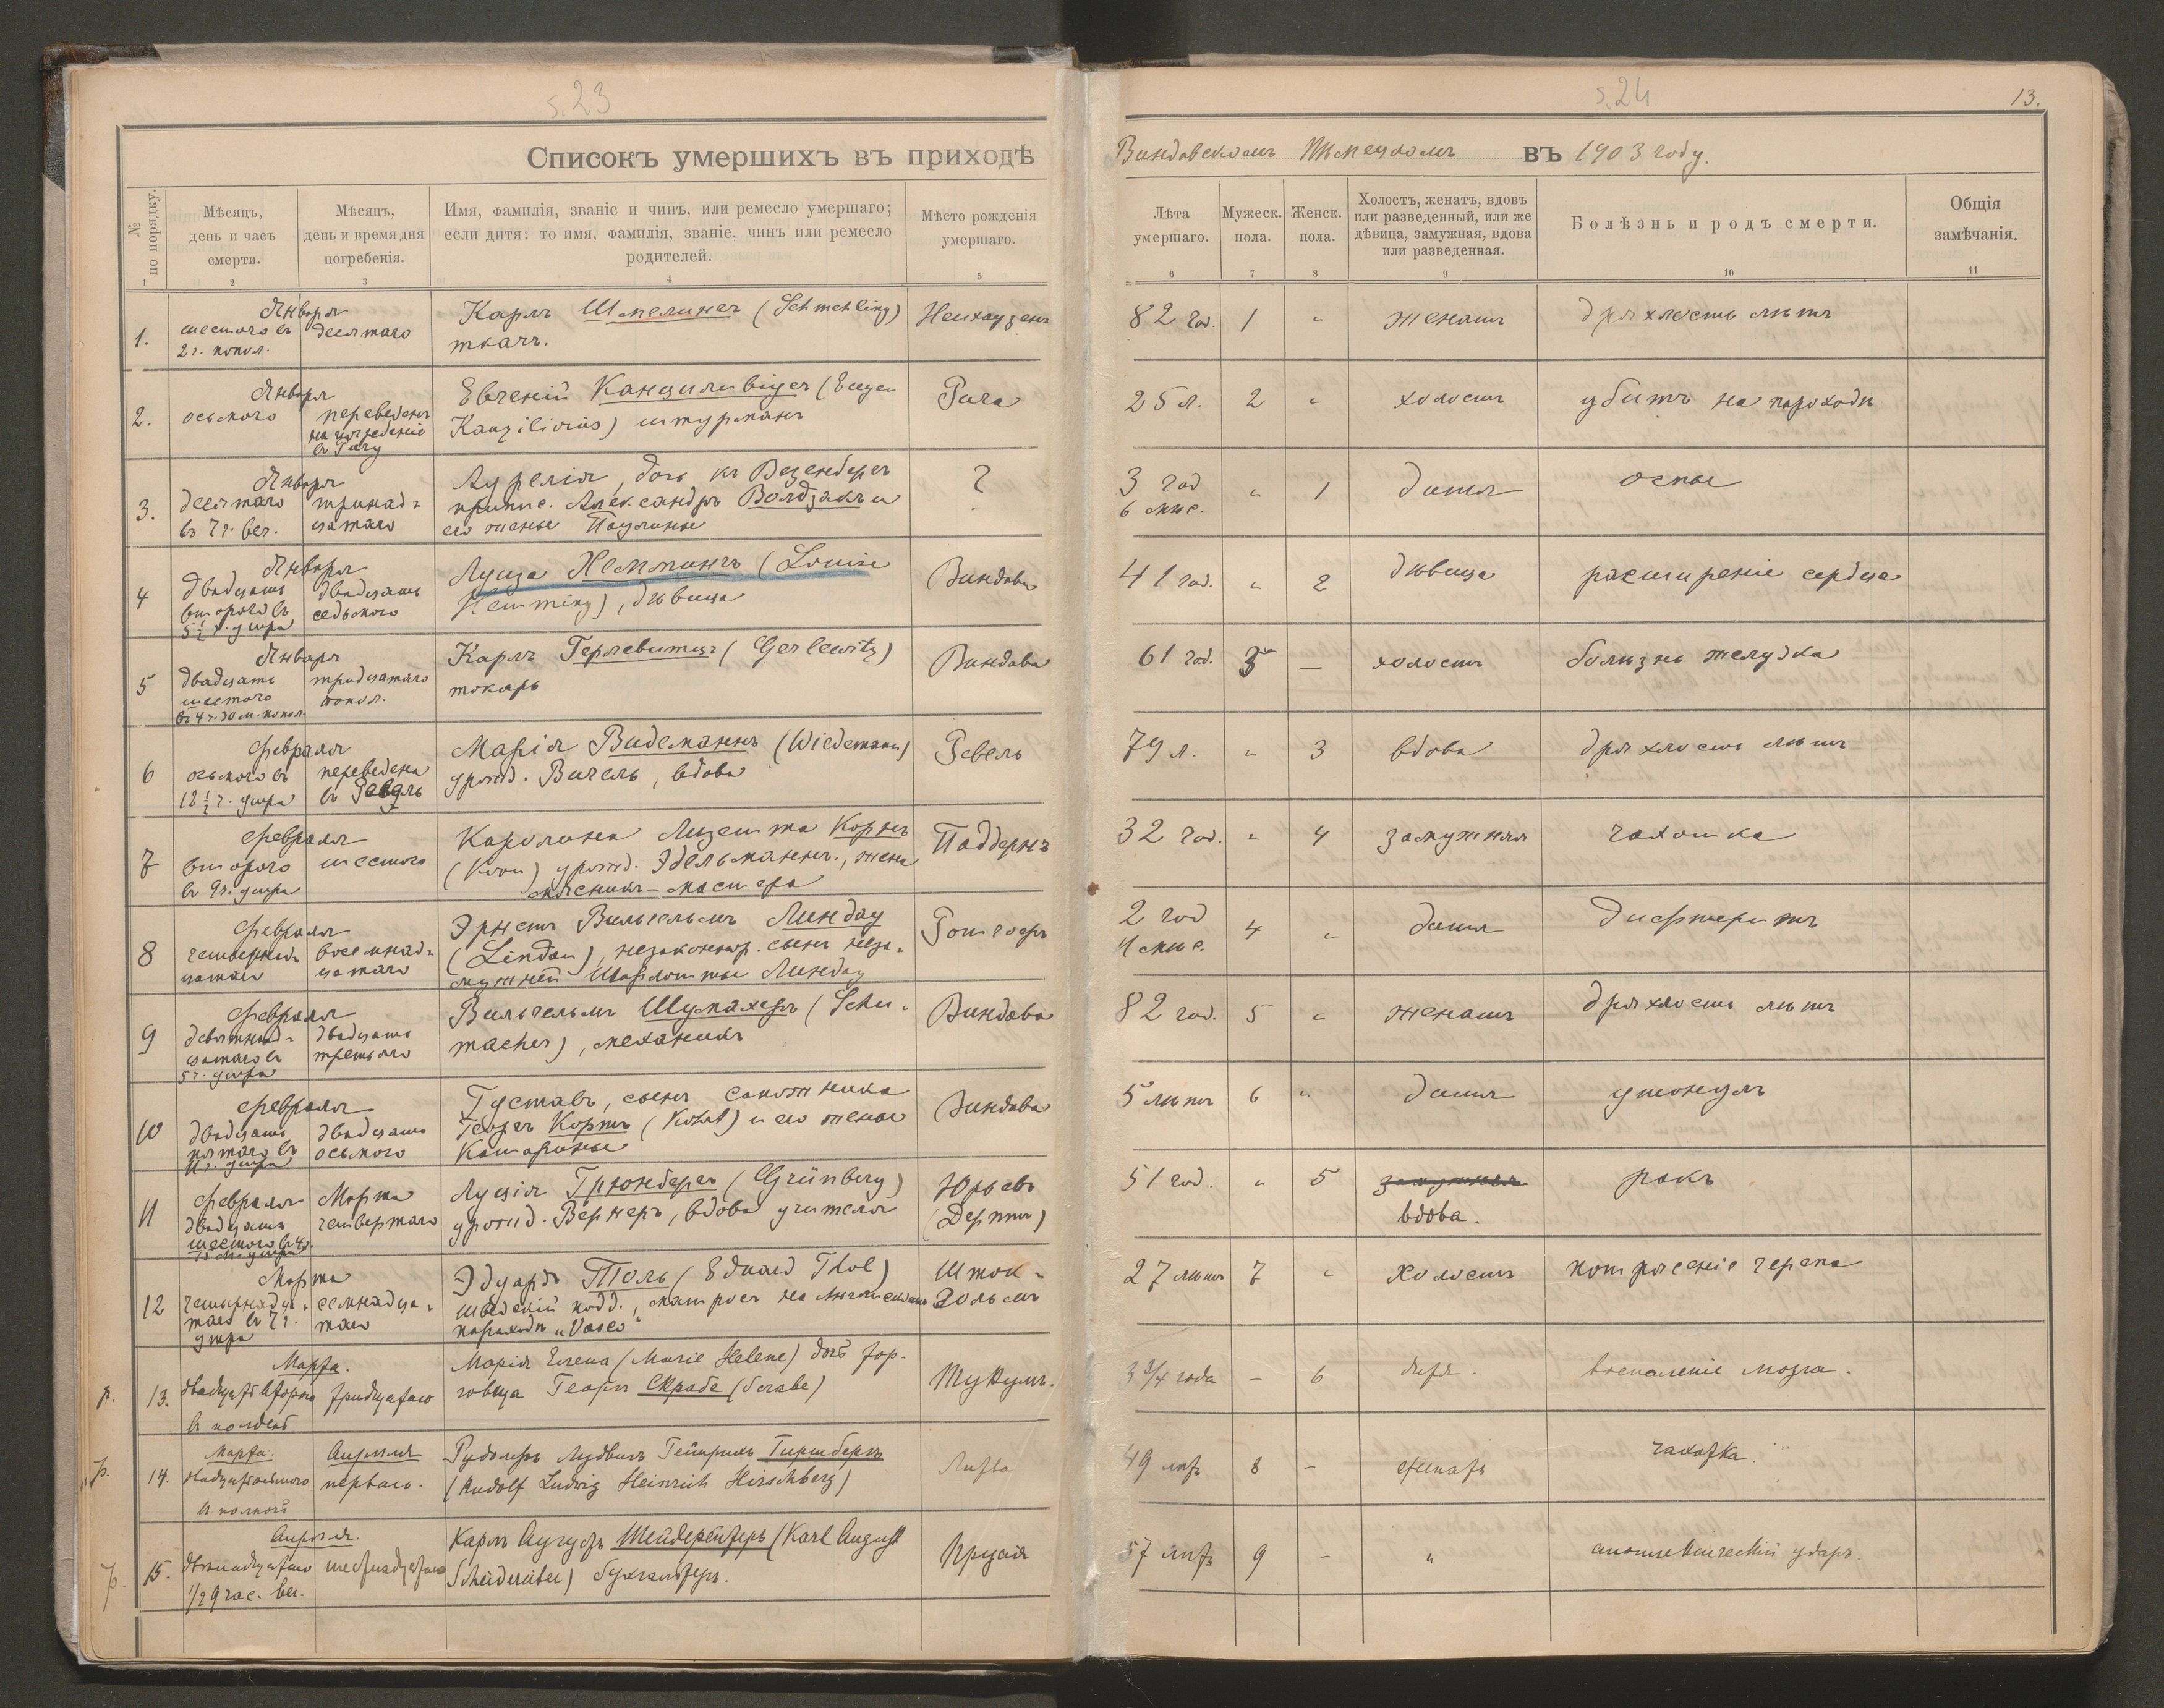 s.23
Списокъ умершихъ въ приходѣ
№ по порядку.
Мѣсяцъ, день и часъ смерти.
Мѣсяцъ, день и время дня погребенія.
Имя, фамилія, званіе и чинъ, или ремесло умершаго;
если дитя: то имя, фамилія, званіе, чинъ или ремесло
родителей.
Мѣсто рожденія умершаго.
1 2 3 4 5
1.
Января
шестого въ
2 ч. попол.
десятаго
Карлъ Шмелингъ (Schmehling)
ткачъ.
Нейхаузенъ
2.
Января
осьмого
переведенъ
на погребеніе
въ Ригу
Евгеній Канциливіусъ (Eugen
Kanzilivius) штурманъ
Рига
3.
Января
десятаго
въ 7 ч. веч.
тринад-
цатаго
Аурелія, дочь къ Везенбергъ
припис. Александръ Волдзакъ и
его жены Паулины
?
4
Января
двадцать
второго въ
5 ½ ч. утра
двадцать
седьмого
Луиза Хеммингъ (Louise
Hemming), дѣвица
Виндава
5
Января
двадцать
шестого
въ 4 ч. 30 м. попол.
тридцатаго
попол.
Карлъ Герлевитцъ (Gerlewitz)
токарь
Виндава
6
Февраля
осьмого въ
12 ½ ч. утра
переведена
въ Ревель
Марія Видеманнъ (Wiedemann)
урожд. Вигель, вдова
Ревель
7
Февраля
второго
въ 9 ч. утра
шестого
Каролина Лизетта Корнъ
(Korn) урожд. Эдельманнъ, жена
мясника-мастера
Паддернъ
8
Февраля
четырнад-
цатаго
восемнад-
цатаго
Эрнстъ Вильгельмъ Линдау
(Lindau), незаконнор. сынъ неза-
мужней Шарлотты Линдау
9
Февраля
девятнад-
цатаго въ
5 ч. утра
двадцать
третьяго
Вильгельмъ Шумахеръ (Schu-
macher), механикъ
Виндава
10
Февраля
двадцать
пятаго въ
11 ч. утра
двадцать
осьмого
Густавъ, сынъ сапожника
Георгъ Кортъ (Kort) и его жены
Катарины
Виндава
11
Февраля
двадцать
шестого въ 4 ч.
Марта
четвертаго
Луція Грюнбергъ (Grünberg)
урожд. Вернеръ, вдова учителя
Юрьевъ
(Дерптъ)
12
Марта
четырнадца-
таго въ 7 ч.
утра
семнадца-
таго
Эдуардъ Толь (Eduard Thol)
шведскій подд., матросъ на Англійскомъ
пароходѣ „Vasco“
Шток-
гольмъ
13.
Марта.
двадцать второго
въ полдень
тридцатаго
Марія Елена (Marie Helene) дочь тор-
говца Георгъ Скрабе (Scrabe)
Туккумъ.
14.
Марта.
двадцать осьмого
въ полночь
Апрѣля
перваго.
Рудольфъ Лудвигъ Гейнрихъ Гиршбергъ
(Rudolf Ludwig Heinrich Hirschberg)
Литва
15.
Апрѣля.
двѣнадцатаго
½ 9 час. веч.
шестнадцатаго
Карлъ Аугустъ (Karl August
бухгальтеръ.
Пруссія
s.24
13.
Виндавскомъ Нѣмецкомъ въ 1903 году.
Лѣта умершаго.
Мужеск. пола.
Женск. пола.
Холостъ, женатъ, вдовъ
или разведенный, или же
дѣвица, замужная, вдова
или разведенная.
Болѣзнь и родъ смерти.
Общія замѣчанія.
6 7 8 9 10 11
82 год. 1 „ женатъ дряхлость лѣтъ
25 л. 2 „ холостъ убитъ на пароходѣ
3 год
6 мѣс. „ 1 дитя оспы
41 год. „ 2 дѣвица расширеніе сердца
61 год. 3 — холостъ болѣзнь желудка
79 л. „ 3 вдова дряхлость лѣтъ
32 год. „ 4 замужняя чахотка
2 год
4 „ дитя дифтеритъ
82 год. 5 „ женатъ дряхлость лѣтъ
5 лѣтъ 6 „ дитя утонулъ
51 год. „ 5 замужняя
вдова. ракъ
27 лѣтъ 7 „ Холостъ потрясеніе черепа
3 ¾ года – 6 дитя. воспаленіе мозга.
49 лѣтъ 8 – женатъ чахотка.
57 лѣтъ 9 – „ апоплексическій ударъ.